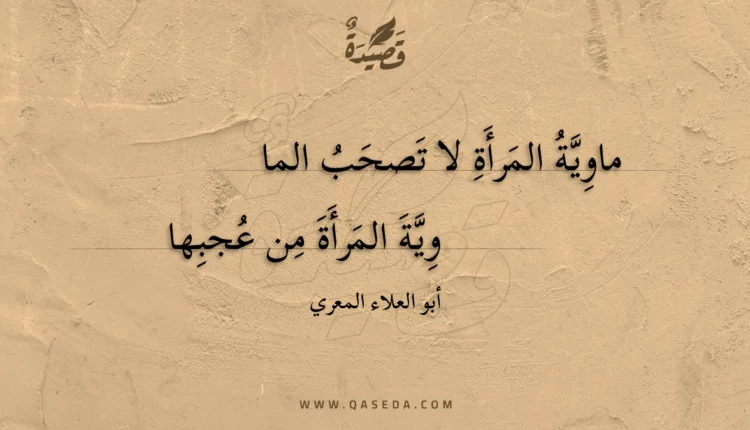 قَصِيدَةٌ
ماوِيَّةُ المَرأَةِ لا تَصحَبُ الما
وِيَّةَ المَرأَةَ مِن عُجبِها
أبو العلاء المعري
WWW.QASEDA.COM